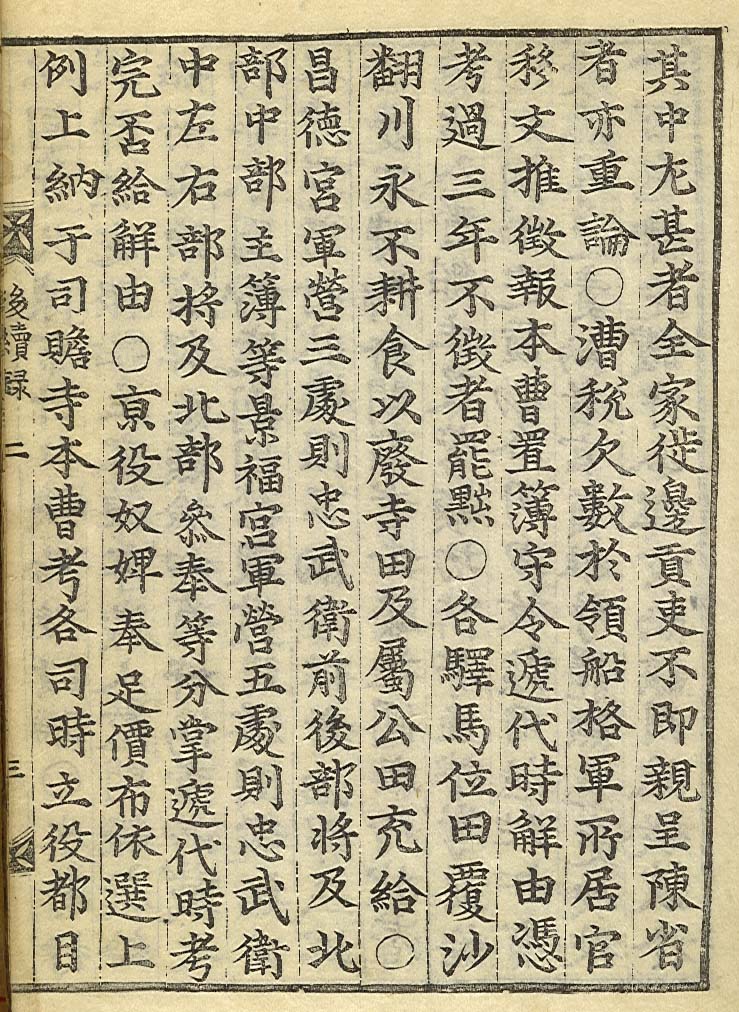 其中尤甚者全家徙邊貢吏不即親呈陳省
者亦重論○漕稅欠數於領船格軍所居官
移文推徵報本曹置簿守令遞代時解由憑
考過三年不徵者罷黜○各驛馬位田覆沙
翻川永不耕食以廢寺田及屬公田充給○
昌德宮軍營三處則忠武衛前後部將及北
部中部主簿等景福宮軍營五處則忠武衛
中左右部將及北部叅奉等分掌遞代時考
完否給解由○京役奴婢奉足價布依選上
例上納于司贍寺本曹考各司時立役都目
後續錄 二 三